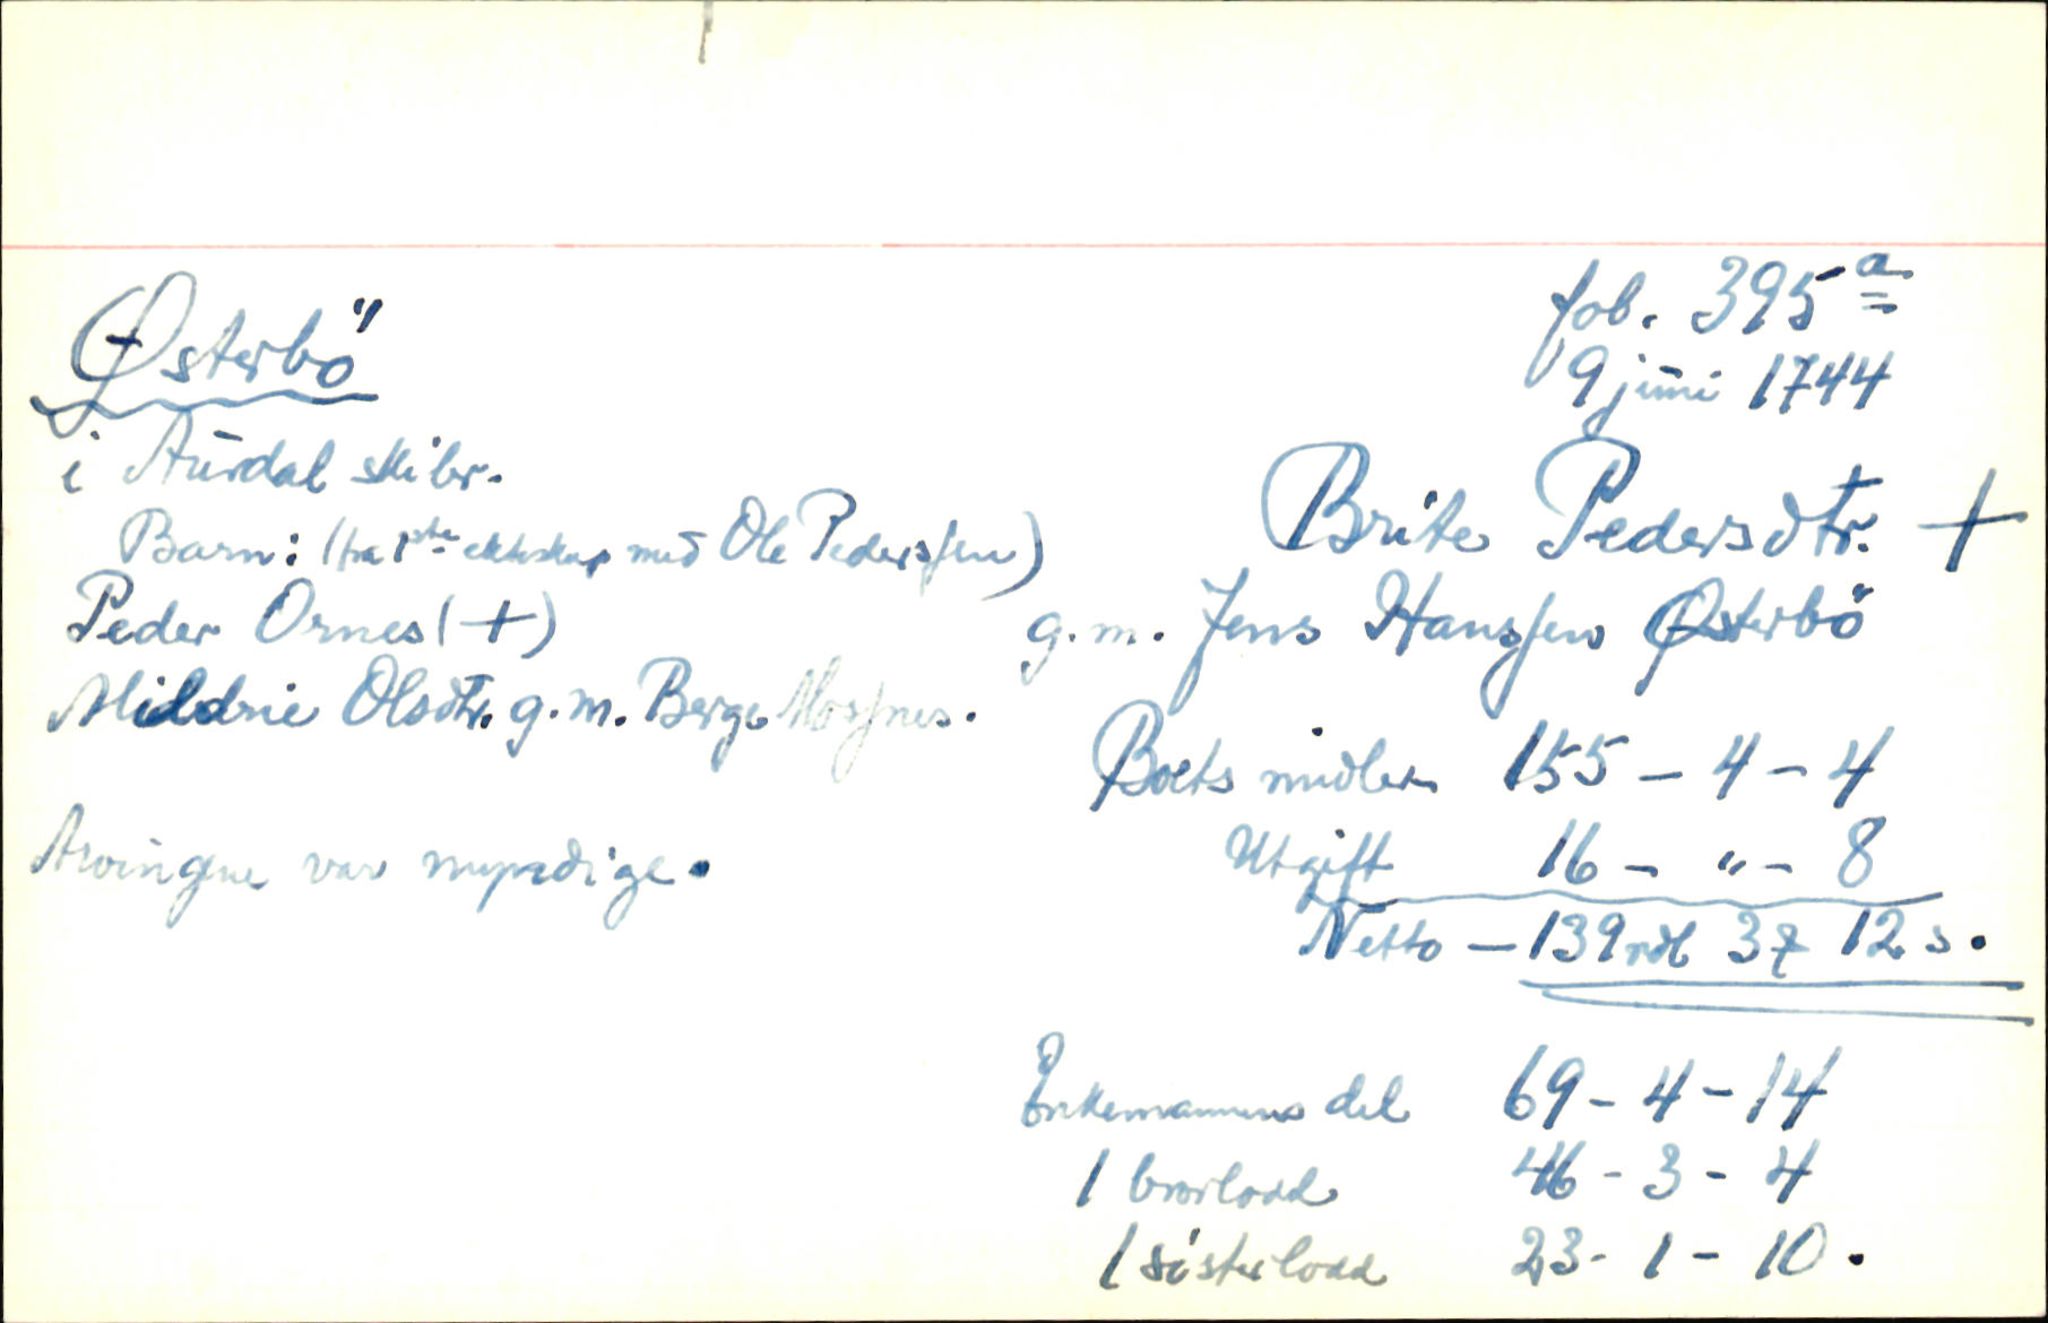 fol. 395 a
9 juni 1744
Østerbö
i Aurdal skibr.
Brite Pedersdtr. +
g.m. Jens Hansen Østerbö
Barn: (fra 1ste ekteskap med Ole Pedersen)
Peder Ornes (+)
Mildrie Olsdtr. g.m. Berge Mosnes.
Arvingene var myndige.
Boets midler 155 - 4 - 4
Utgift 16 - " - 8
Netto - 139 rdl 3 12 s.
Enkemannens del 69 - 4 - 14
1 brorlodd 46 - 3 - 4
1 sösterlodd 23 - 1 - 10.